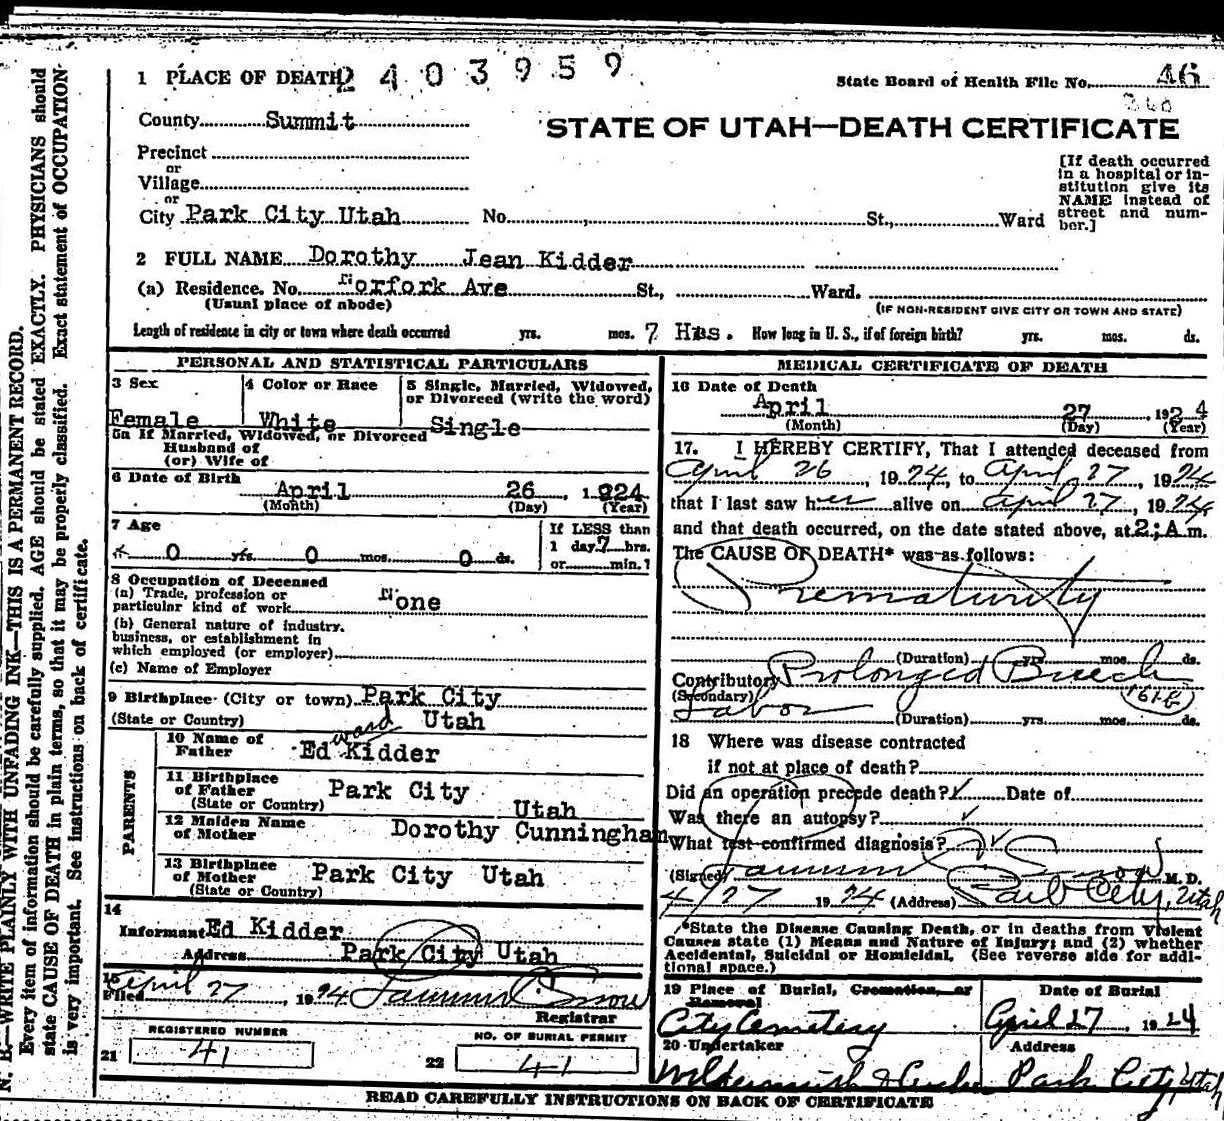 1 PLACE OF DEATH
2 403959
State Board of Health File No. 46
County Summit
STATE OF UTAH—DEATH CERTIFICATE
Precinct
or
Village
or
City Park City Utah No. St., Ward
[If death occurred
in a hospital or in-
stitution give its
NAME instead of
street and num-
ber.]
2 FULL NAME Dorothy Jean Kidder
(a) Residence. No. Norfork Ave St., Ward.
(Usual place of abode)
(IF NON-RESIDENT GIVE CITY OR TOWN AND STATE)
Length of residence in city or town where death occurred yrs. mos. 7 Hrs. How long in U. S., if of foreign birth? yrs. mos. ds.
PERSONAL AND STATISTICAL PARTICULARS
3 Sex
Female
4 Color or Race
White
5 Single, Married, Widowed,
or Divorced (write the word)
Single
5a If Married, Widowed, or Divorced
Husband of
(or) Wife of
6 Date of Birth
April 26, 1924
(Month) (Day) (Year)
7 Age
0 yrs. 0 mos. 0 ds.
If LESS than
1 day 7 hrs.
or min.
8 Occupation of Deceased
(a) Trade, profession or
particular kind of work None
(b) General nature of industry,
business, or establishment in
which employed (or employer)
(c) Name of Employer
9 Birthplace (City or town) Park City
(State or Country) Utah
PARENTS
10 Name of
Father Edward Kidder
11 Birthplace
of Father Park City
(State or Country) Utah
12 Maiden Name
of Mother Dorothy Cunningham
13 Birthplace
of Mother Park City Utah
(State or Country)
14
Informant Ed Kidder
Address Park City Utah
15
Filed April 27, 1924 Snow
Registrar
REGISTERED NUMBER
21 41
NO. OF BURIAL PERMIT
22 41
MEDICAL CERTIFICATE OF DEATH
16 Date of Death
April 27, 1924
(Month) (Day) (Year)
17. I HEREBY CERTIFY, That I attended deceased from
April 26, 1924, to April 27, 1924
that I last saw her alive on April 27, 1924,
and that death occurred, on the date stated above, at 2; A m.
The CAUSE OF DEATH* was as follows:
Prematurity
(Duration) yrs. mos. ds.
Contributory Prolonged Breech
(Secondary)
Labor (Duration) yrs. mos. ds.
161-B
18 Where was disease contracted
if not at place of death?
Did an operation precede death? Date of
Was there an autopsy?
What test confirmed diagnosis?
(Signed) Snow M. D.
4/27 1924 (Address) Park City, Utah
*State the Disease Causing Death, or in deaths from Violent
Causes state (1) Means and Nature of Injury; and (2) whether
Accidental, Suicidal or Homicidal. (See reverse side for addi-
tional space.)
19 Place of Burial, Cremation, or
Removal
City Cemetery
Date of Burial
April 27, 1924
20 Undertaker
Address
Park City, Utah
READ CAREFULLY INSTRUCTIONS ON BACK OF CERTIFICATE
N. B.—WRITE PLAINLY WITH UNFADING INK—THIS IS A PERMANENT RECORD.
Every item of information should be carefully supplied. AGE should be stated EXACTLY. PHYSICIANS should
state CAUSE OF DEATH in plain terms, so that it may be properly classified. Exact statement of OCCUPATION
is very important. See instructions on back of certificate.